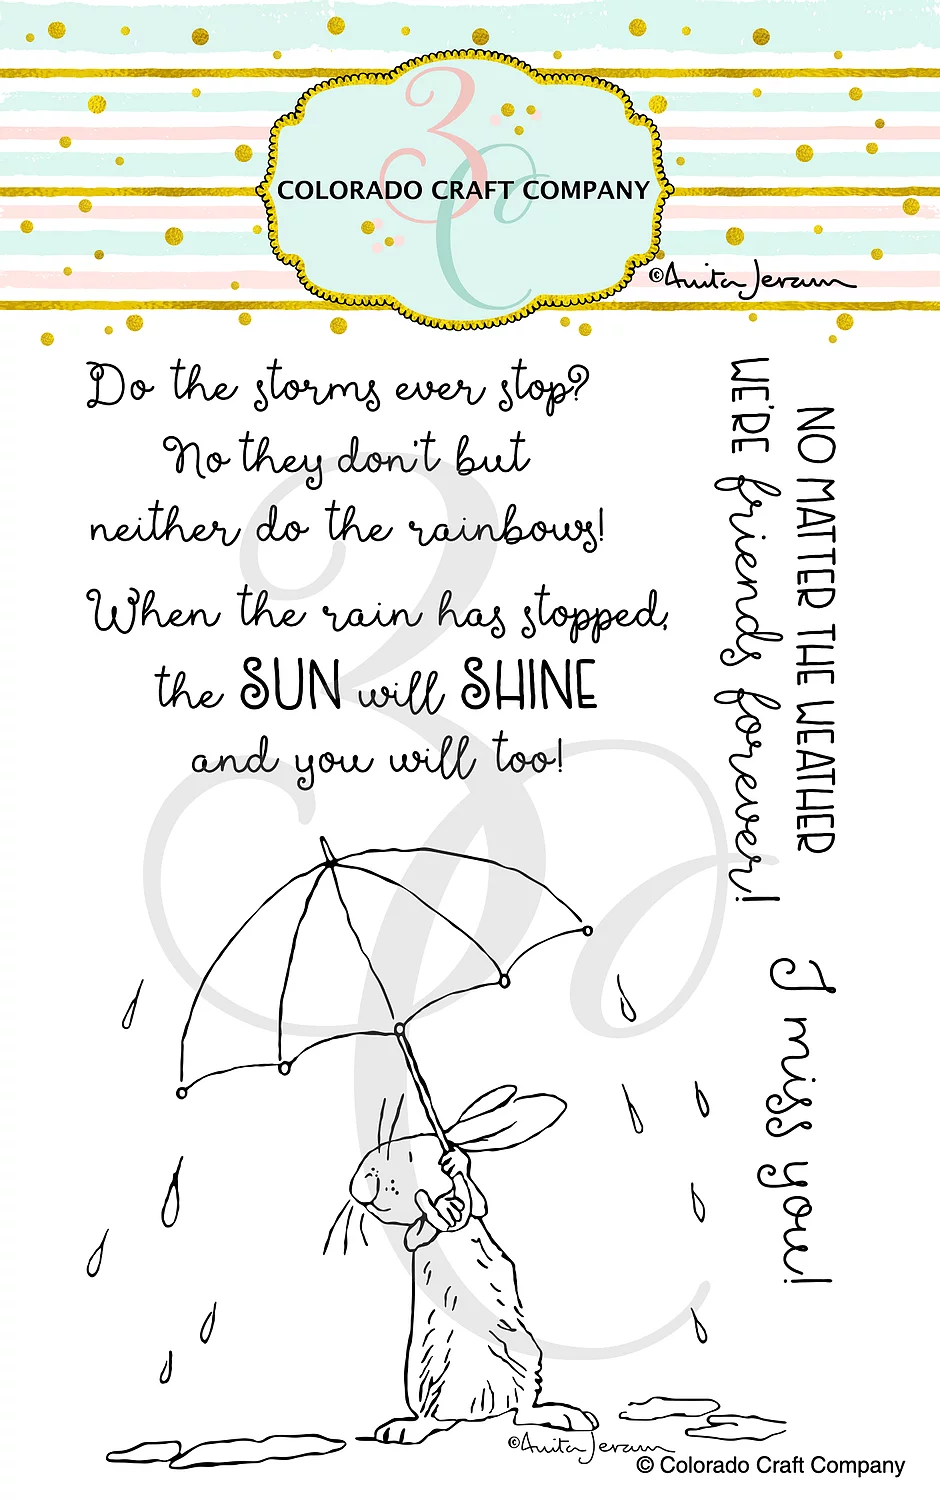 3C
COLORADO CRAFT COMPANY
©Anita Jeram
Do the storms ever stop?
No they don't but
neither do the rainbows!
When the rain has stopped,
the SUN will SHINE
and you will too!
NO MATTER THE WEATHER
WE'RE friends forever!
I miss you!
©Anita Jeram
© Colorado Craft Company